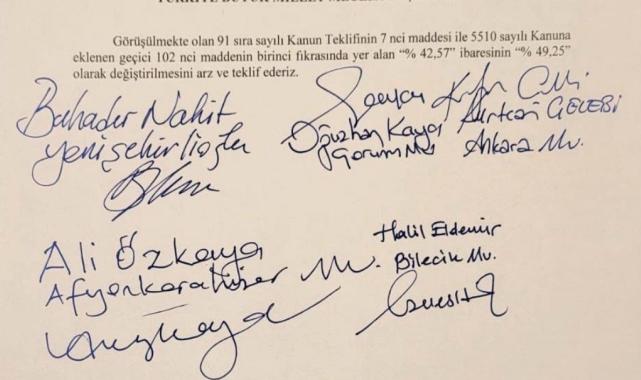 Görüşülmekte olan 91 sıra sayılı Kanun Teklifinin 7 nci maddesi ile 5510 sayılı Kanuna
eklenen geçici 102 nci maddenin birinci fıkrasında yer alan “% 42,57” ibaresinin “% 49,25”
olarak değiştirilmesini arz ve teklif ederiz.
Bahadır Nahit
Yenişehirlioğlu
Oğuzhan Kaya
Çorum Mv.
ÇELEBİ
Ankara Mv.
Ali Özkaya
Afyonkarahisar Mv.
Halil Eldemir
Bilecik Mv.